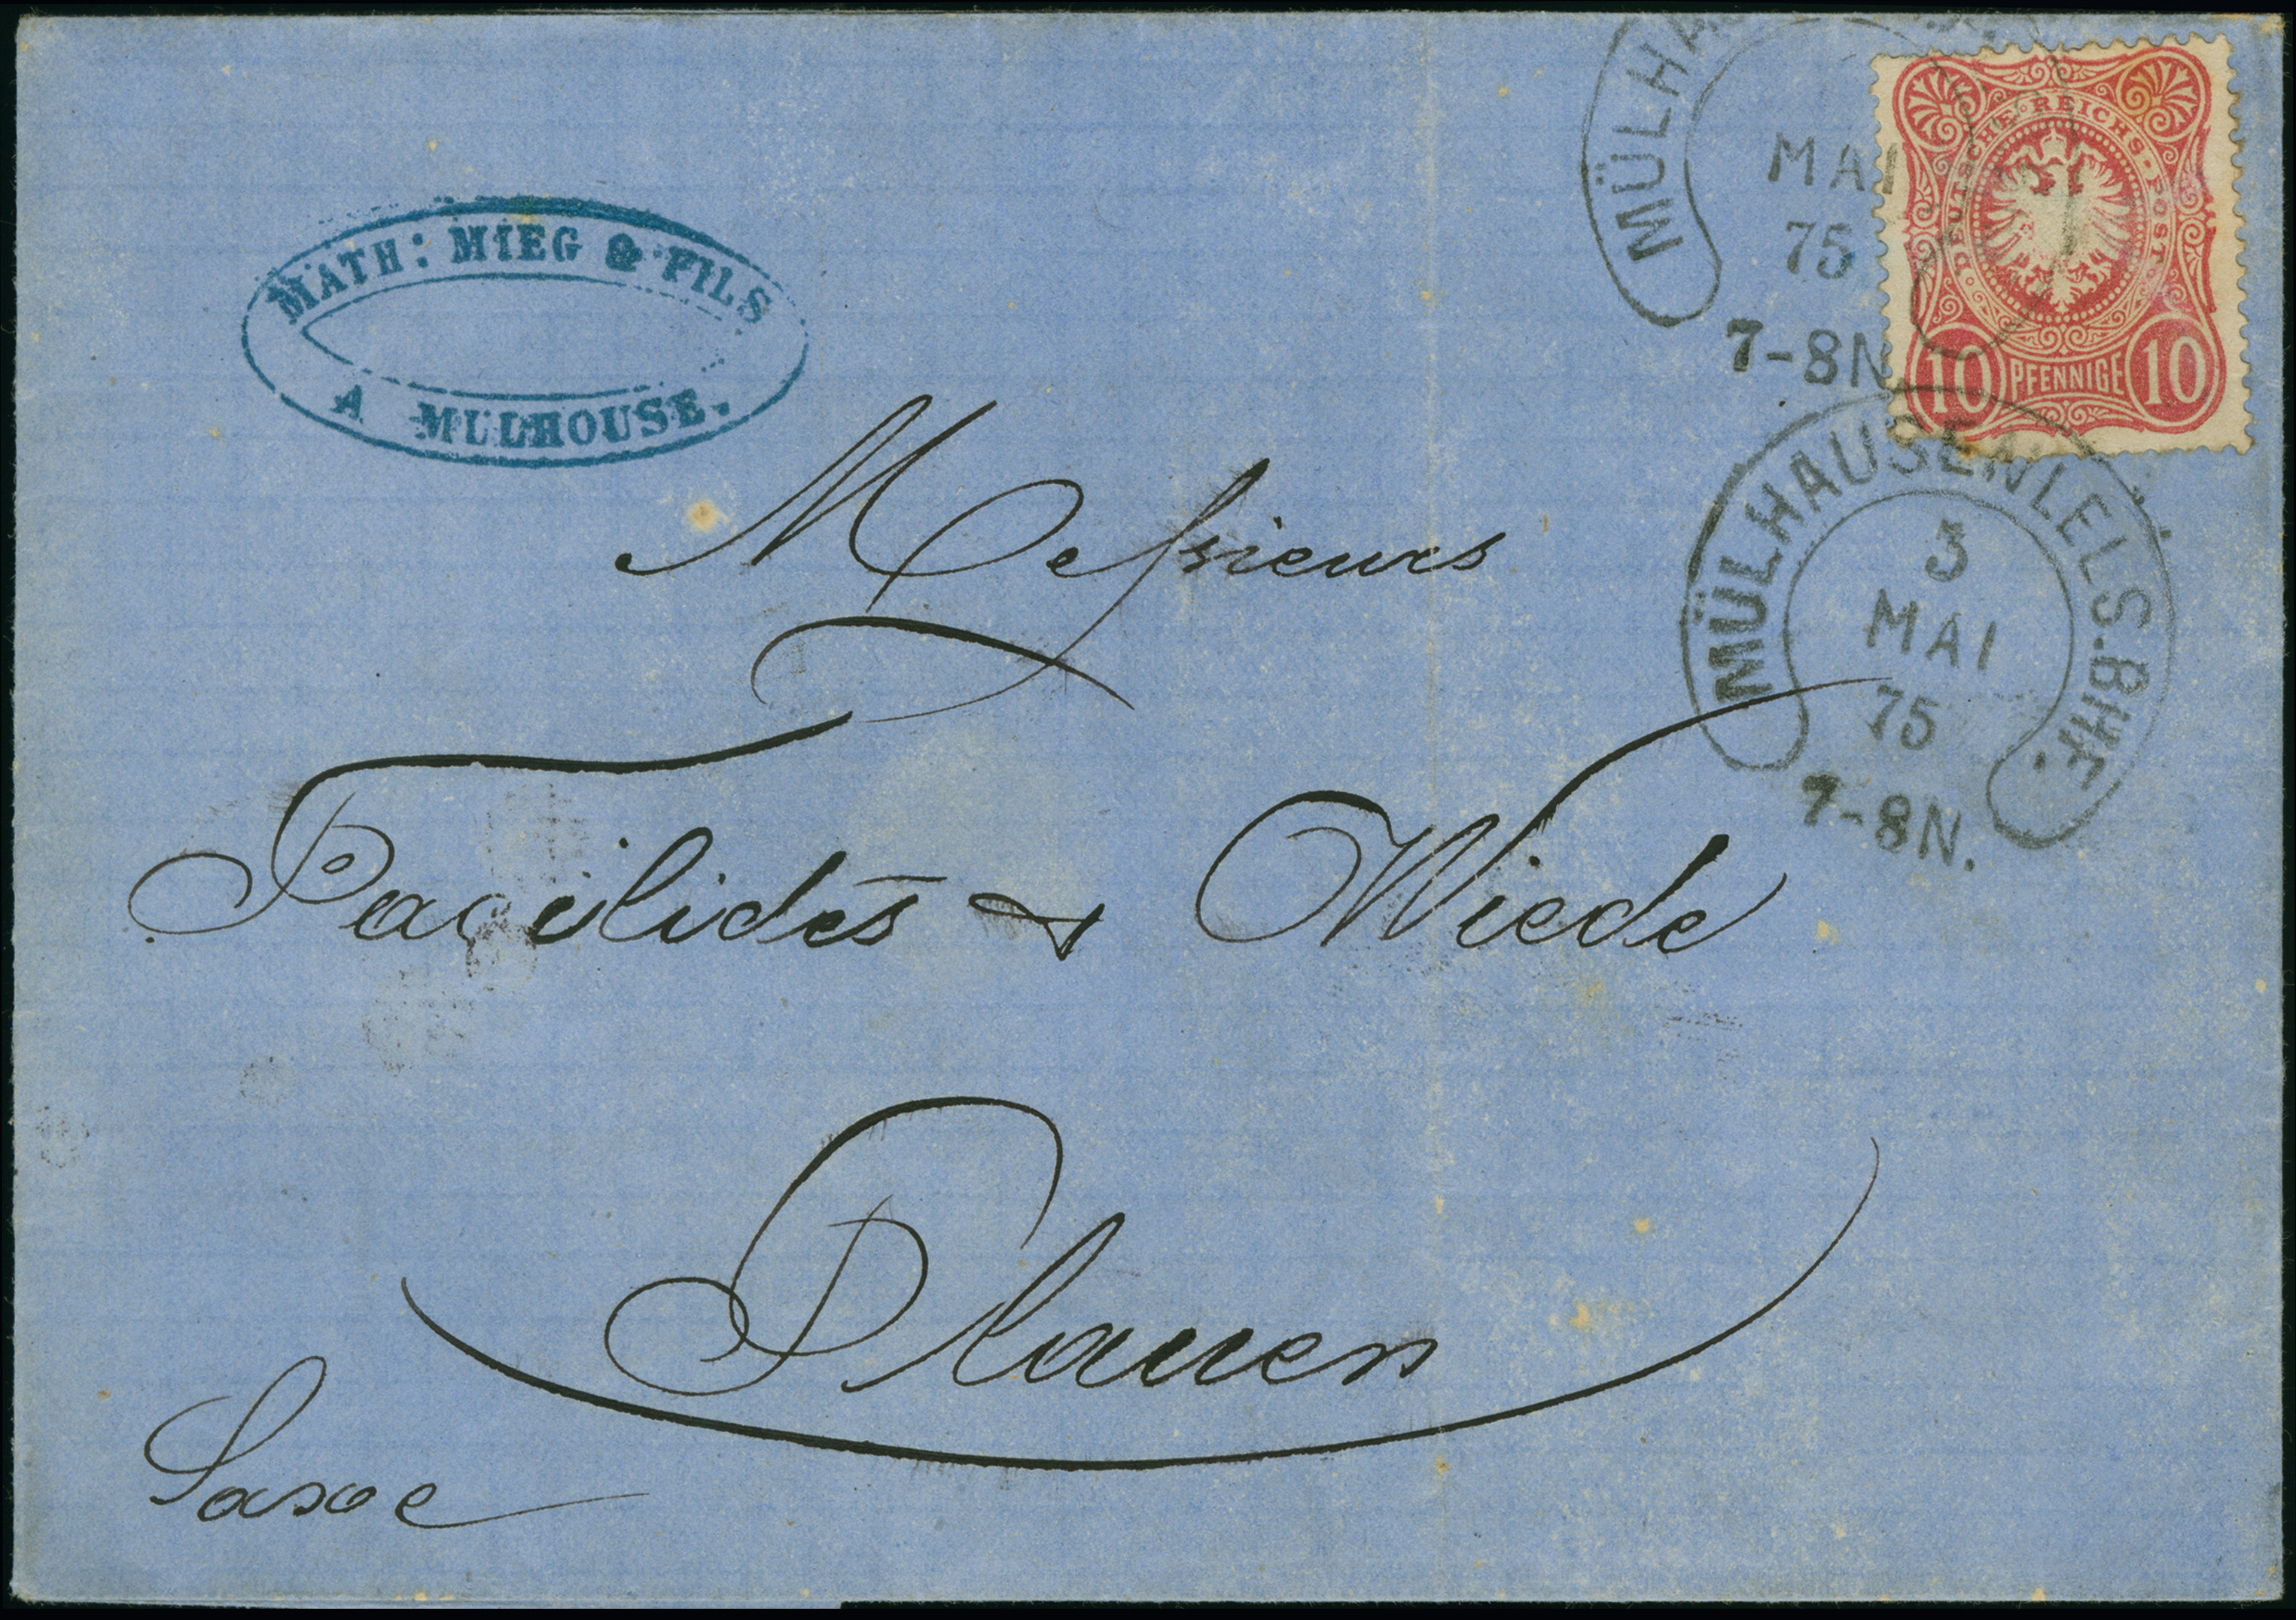 MATH: MIEG & FILS
A MULHOUSE.
MÜLHA
MAI
75
7-8N
DEUTSCHE REICHS-POST
10 PFENNIGE 10
MÜLHAUSEN I.ELS.BHF.
3
MAI
75
7-8N.
Messieurs
& Wiede
Plauen
Saxe